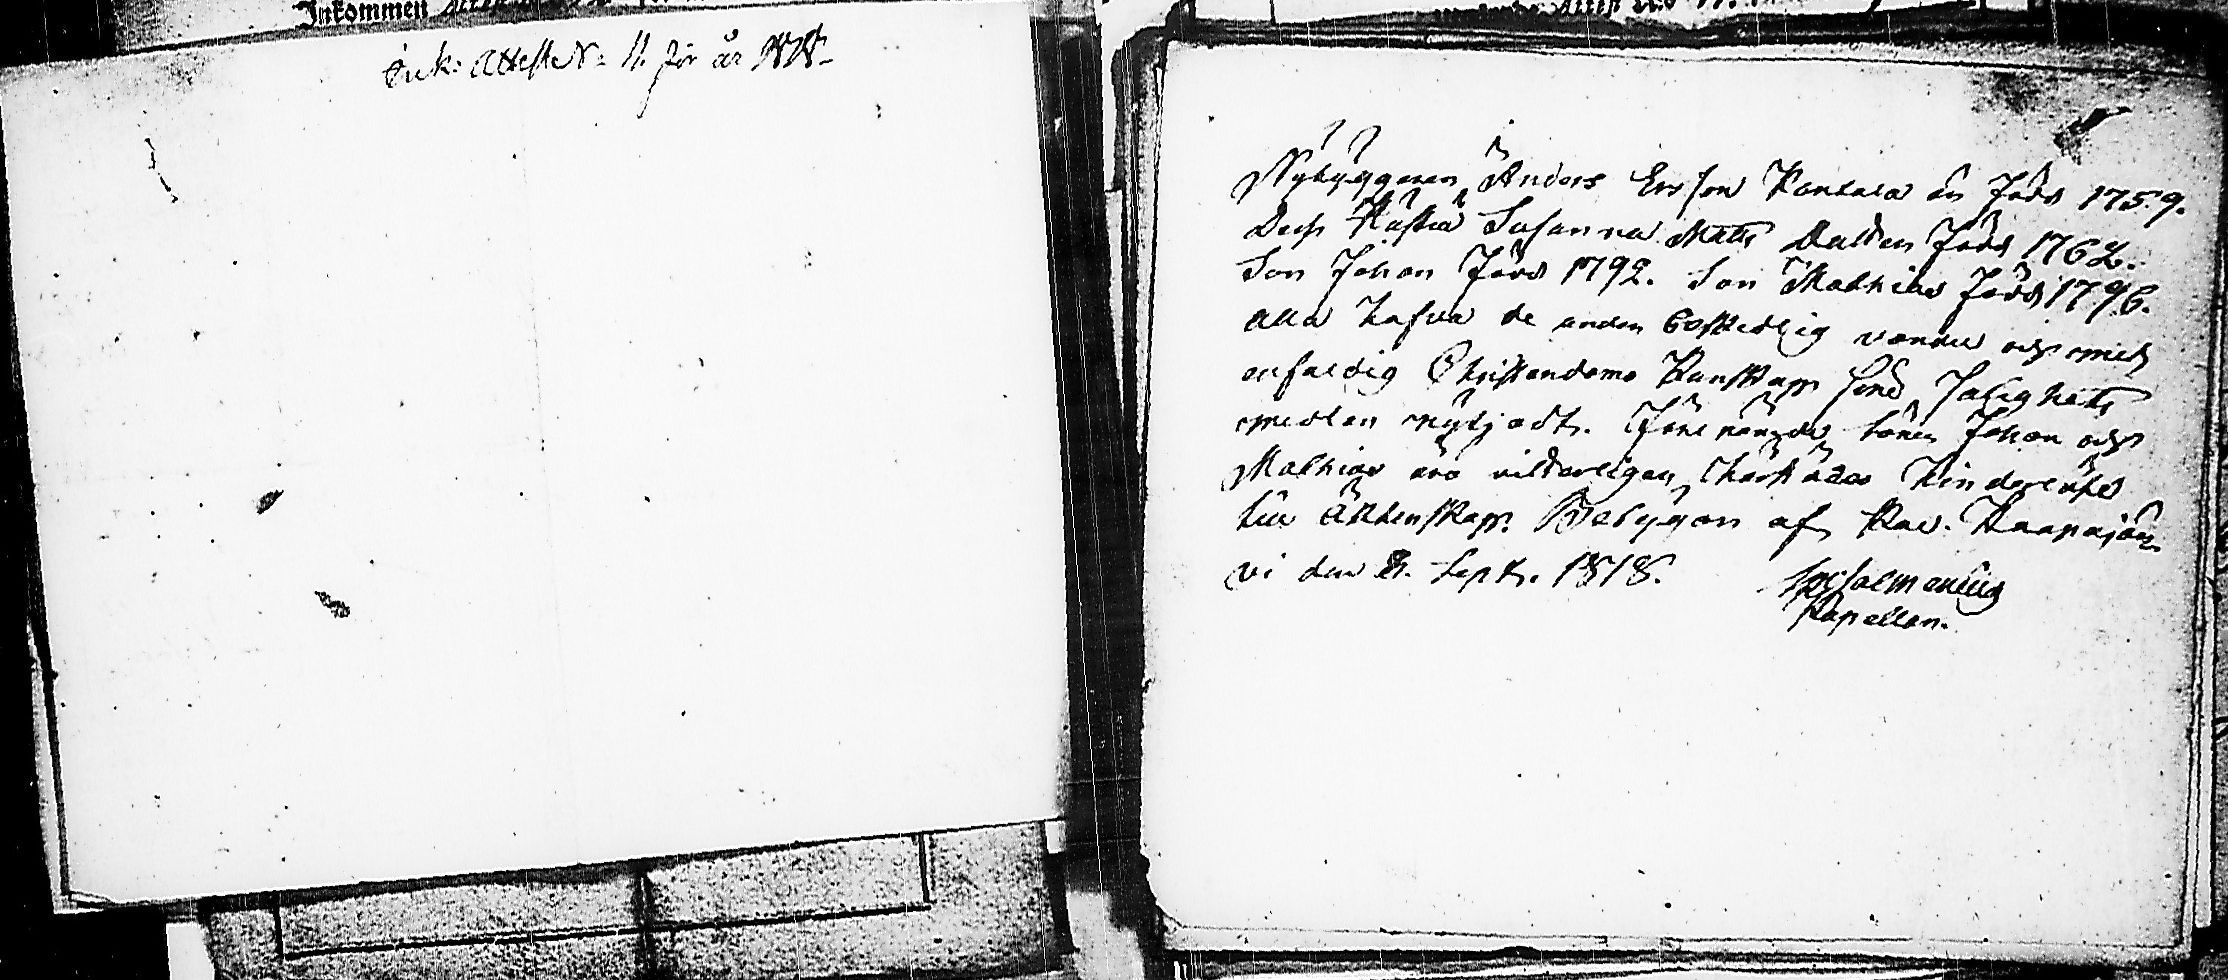 Inkommen
Ink: Attest N: 11. för år 1818
Nybyggaren Anders Ersson Kantala är född 1759.
Dess Hustru Susanna Matts Dotter född 1762.
Son Johan född 1792. Son Mathias född 1796.
alla hafva de under beskedlig vandel och med
enfaldig Christendoms Kunskap sina Salighets
medlen nytjadt. Förenämde söner Johan och
Mathias äro hinderlöse
till Äktenskap. Betygar af
vi den 8. Sept. 1818.
Salmenius
Kapellan.